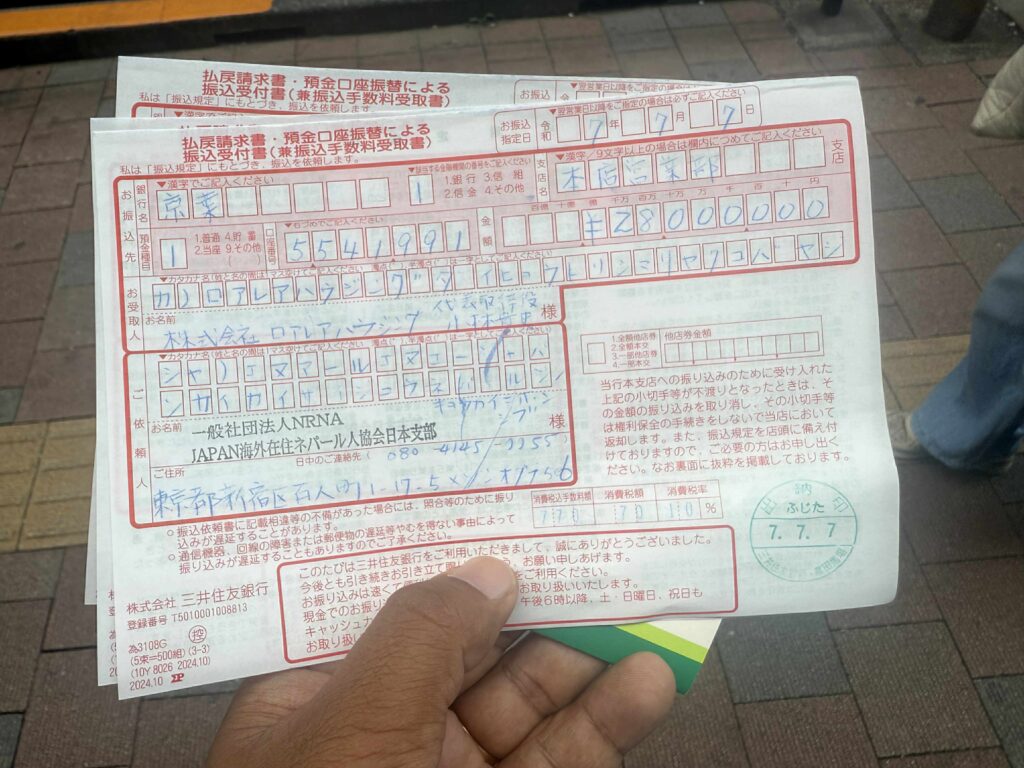 払戻請求書・預金口座振替による
振込受付書(兼振込手数料受取書)
私は「振込規定」にもとづき、振込を依頼します。
払戻請求書・預金口座振替による
振込受付書(兼振込手数料受取書)
私は「振込規定」にもとづき、振込を依頼します。
お振込指定日 令和 7年 7月 7日
▼翌営業日以降をご指定の場合は必ずご記入ください
お振込先
銀行名
▼漢字でご記入ください
京葉
▼該当する金融機関の番号をご記入ください
1
1.銀行 3.信組
2.信金 4.その他
支店名
▼漢字/9文字以上の場合は欄内につめてご記入ください
本店営業部
支店
預金種目
1
1.普通 4.貯蓄
2.当座 9.その他
口座番号
▼右づめでご記入ください
5541991
金額
百億 十億 億 千万 百万 十万 万 千 百 十 円
¥28000000
お受取人
カ)ロアレアハウジング ダイヒヨウトリシマリヤクコバヤシ
お名前
株式会社 ロアレアハウジング 代表取締役
様
ご依頼人
シヤ)エヌアールエヌエージヤパ
ンカイガイザイジユウネパールジン
キヨウカイニホンシブ
お名前
一般社団法人NRNA
JAPAN海外在住ネパール人協会日本支部
様
日中のご連絡先(080-4145-
ご住所
東京都新宿区百人町1-17-5
1.全額他店券
2.全額本交
3.一部他店券
4.一部本交
他店券金額
当行本支店への振り込みのために受け入れた
上記の小切手等が不渡りとなったときは、そ
の金額の振り込みを取り消し、その小切手等
は権利保全の手続きをしないで当店において
返却します。また、振込規定を店頭に備え付
けておりますので、ご必要の方はお申し出く
ださい。なお裏面に抜粋を掲載しております。
○振込依頼書に記載相違等の不備があった場合には、照合等のために振
り込みが遅延することがあります。
○通信機器、回線の障害または郵便物の遅延等やむを得ない事由によって
振り込みが遅延することもありますのでご了承ください。
消費税込手数料額 消費税額 消費税率
770 70 10%
出納印
ふじた
7.7.7
このたびは三井住友銀行をご利用いただきまして、誠にありがとうございました。
今後とも引き続きお引き立て お願い申しあげます。
お振り込みは遠く をご利用ください。
現金でのお振り お取り扱いいたします。
キャッシュカ 午後6時以降、土・日曜日、祝日も
お取り扱い
株式会社 三井住友銀行
登録番号 T5010001008813
為3108G 控
(5束=500組)(3-3)
(10Y 8026 2024.10)
2024.10